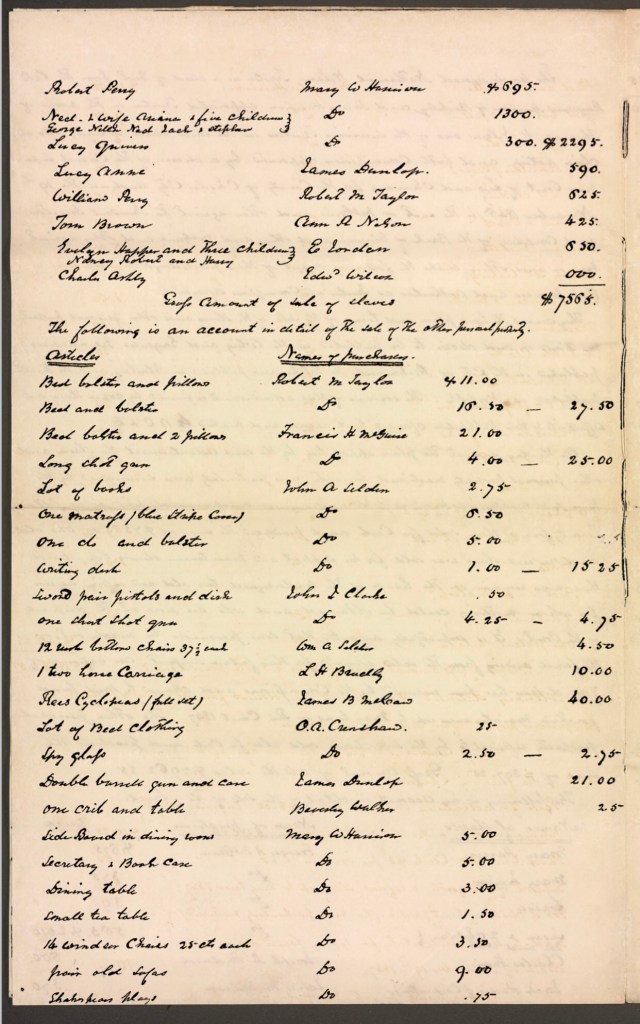 Robert Perry Mary W Harrison $695.
Ned & Wife Ariana & five children } Do 1300.
George Nelts Ned Jack & Stephen }
Lucy Do 300. $2295.
Lucy Anne James Dunlop. 590.
William Perry Robert M Taylor 625.
Tom Brown Ann A Nelson 425.
Evelyn Happer and Three Children } E 650.
Nancy Robert and Henry }
Charles Ashby Edwd Wilcox 000.
Gross Amount of sale of slaves $7565.
The following is an account in detail of the sale of the other personal property.
Articles Names of purchasers.
Bed bolster and pillows Robert M Taylor $11.00
Bed and bolster Do 16.50 — 27.50
Bed bolster and 2 pillows Francis H McGuire 21.00
Long shot gun Do 4.00 — 25.00
Lot of books John A Selden 2.75
One matrass (blue stripe Cover) Do 6.50
One do and bolster Do 5.00
Writing desk Do 1.00 — 15 25
Sword pair pistols and dirk John Clarke .50
one short shot gun Do 4.25 – 4.75
12 bottom chairs 37½ each Wm A Selden 4.50
1 two horse Carriage L H 10.00
Rees Cyclopeas (full set) James B McCaw 40.00
Lot of Bed Clothing O.A. Crenshaw. 25
Spy glass Do 2.50 — 2.75
Double barrelle gun and case James Dunlop 21.00
One crib and table Beverly Walker 25
Side Board in dining room Mary W Harrison 5.00
Secretary & Book Case Do 5.00
Dining table Do 3.00
Small tea table Do 1.50
14 Windsor Chairs 25 cts each Do 3.50
pair old sofas Do 9.00
Shakespears plays Do .75